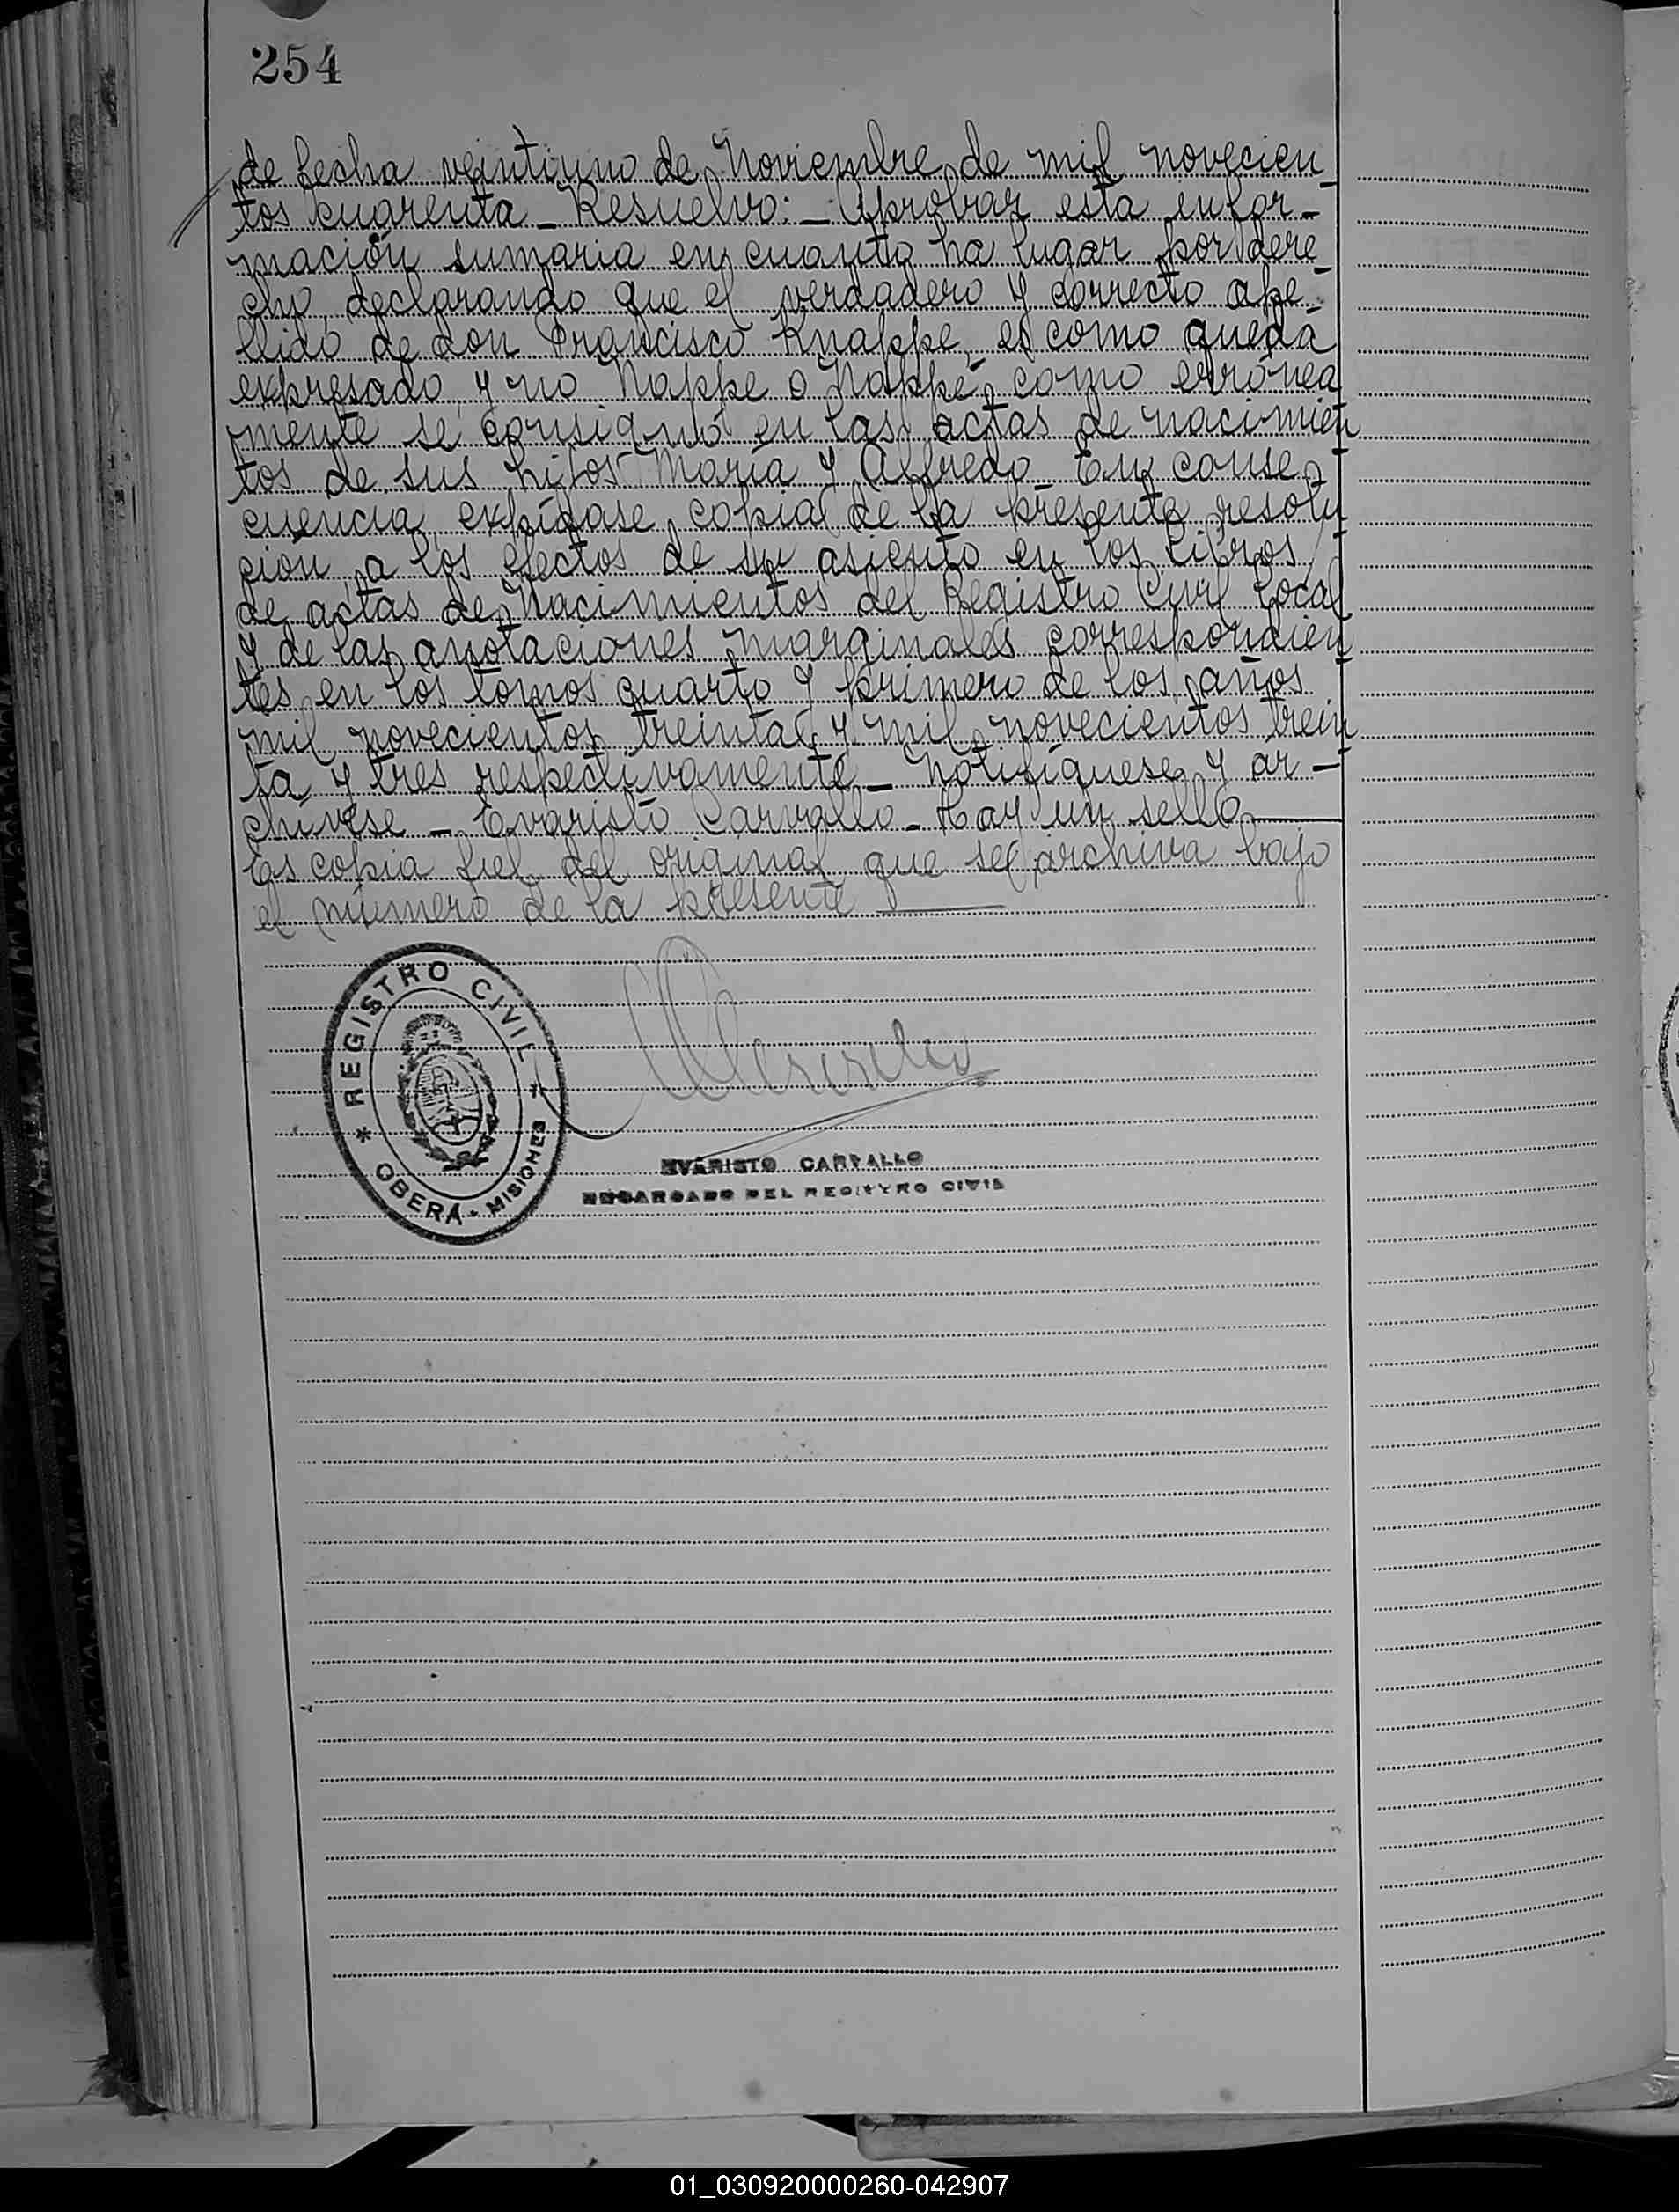 254
de fecha veintiuno de Noviembre de mil novecien_
tos cuarenta _ Resuelvo: _ Aprobar esta infor_
mación sumaria en cuanto ha lugar por dere_
cho, declarando que el verdadero y correcto ape_
llido de don Francisco Knappe, es como queda
expresado, y no Nappe o Nappé, como erronea
mente se consignó en las actas de nacimien
tos de sus hijos María y Alfredo _ En conse_
cuencia expídase copia de la presente resolu
ción, a los efectos de su asiento en los libros
de actas de Nacimientos del Registro Civil local
y de las anotaciones marginales correspondien
tes en los tomos cuarto y primero de los años
mil novecientos treinta y mil novecientos trein
ta y tres respectivamente _ Notifíquese y ar_
chívese _ Evaristo Carvallo _ Hay un sello
Es copia fiel del original que se archiva bajo
el número de la presente
REGISTRO CIVIL
* OBERÁ - MISIONES *
EVARISTO CARVALLO
ENCARGADO DEL REGISTRO CIVIL
01_030920000260-042907